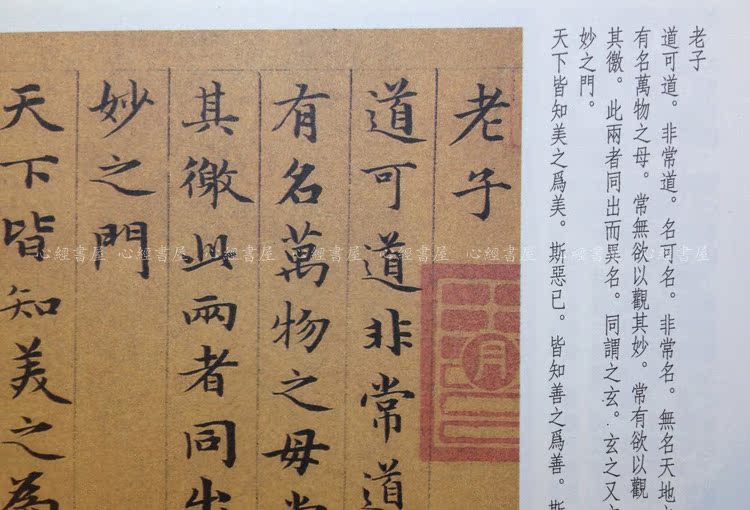 老子
道可道。非常道。名可名。非常名。無名天地
有名萬物之母。常無欲以觀其妙。常有欲以觀
其徼。此兩者同出而異名。同謂之玄。玄之又
妙之門。
天下皆知美之爲美。斯惡已。皆知善之爲善。斯
老子
道可道非常道
有名萬物之母常
其徼此兩者同出
妙之門
天下皆知美之為
心經書屋 心經書屋 心經書屋 心經書屋 心經書屋 心經書屋 心經書屋 心經書屋